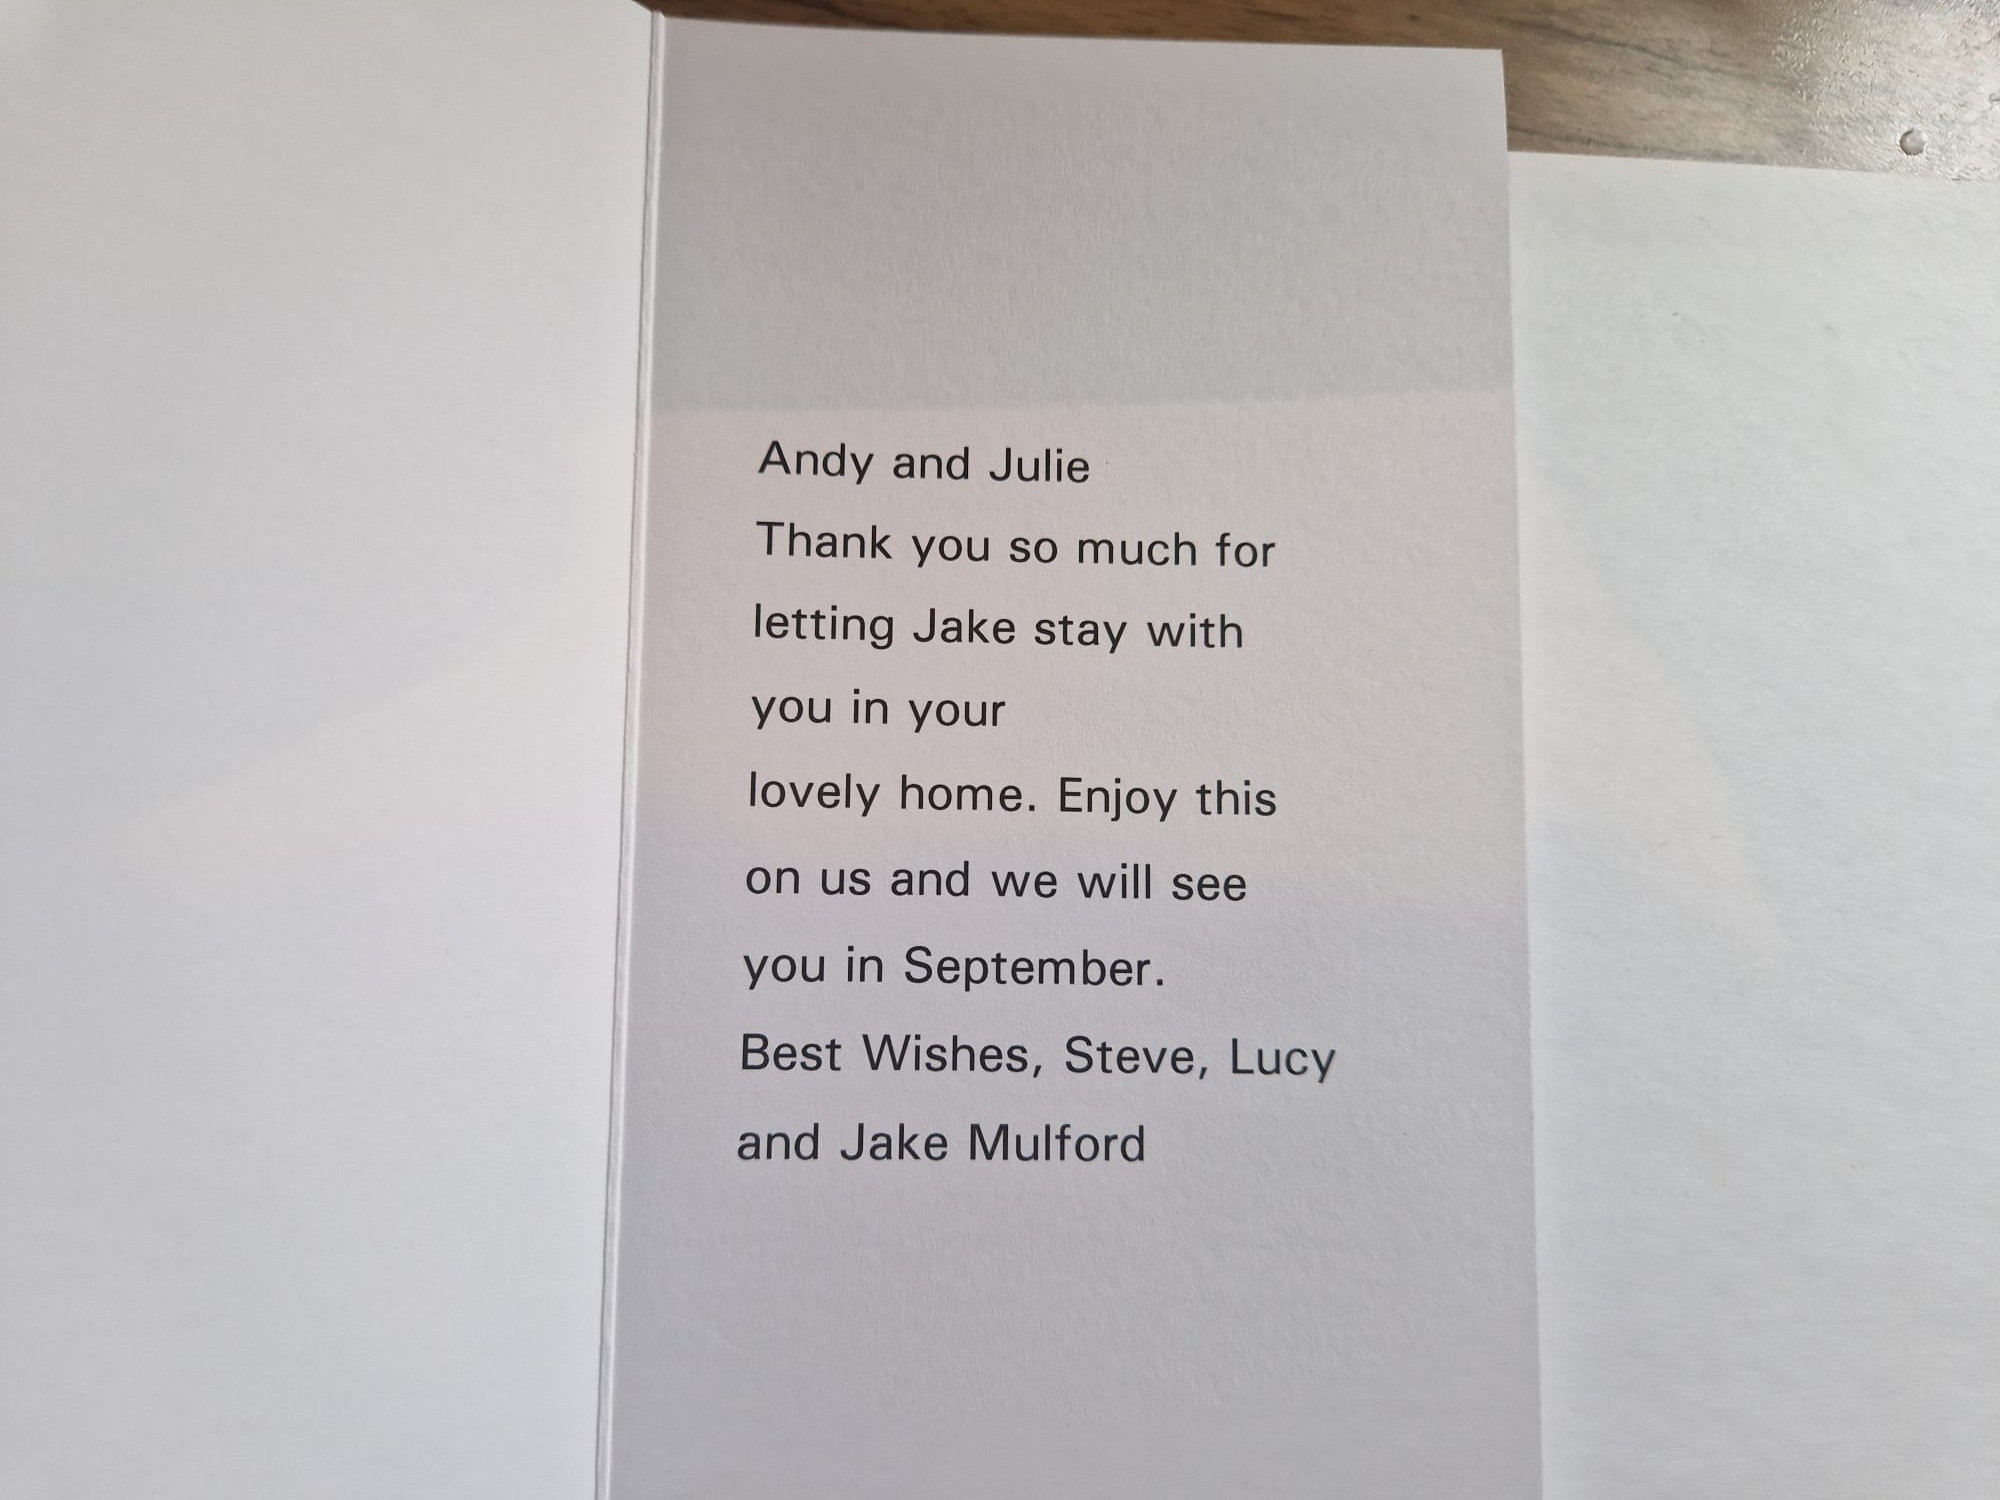 Andy and Julie
Thank you so much for
letting Jake stay with
you in your
lovely home. Enjoy this
on us and we will see
you in September.
Best Wishes, Steve, Lucy
and Jake Mulford